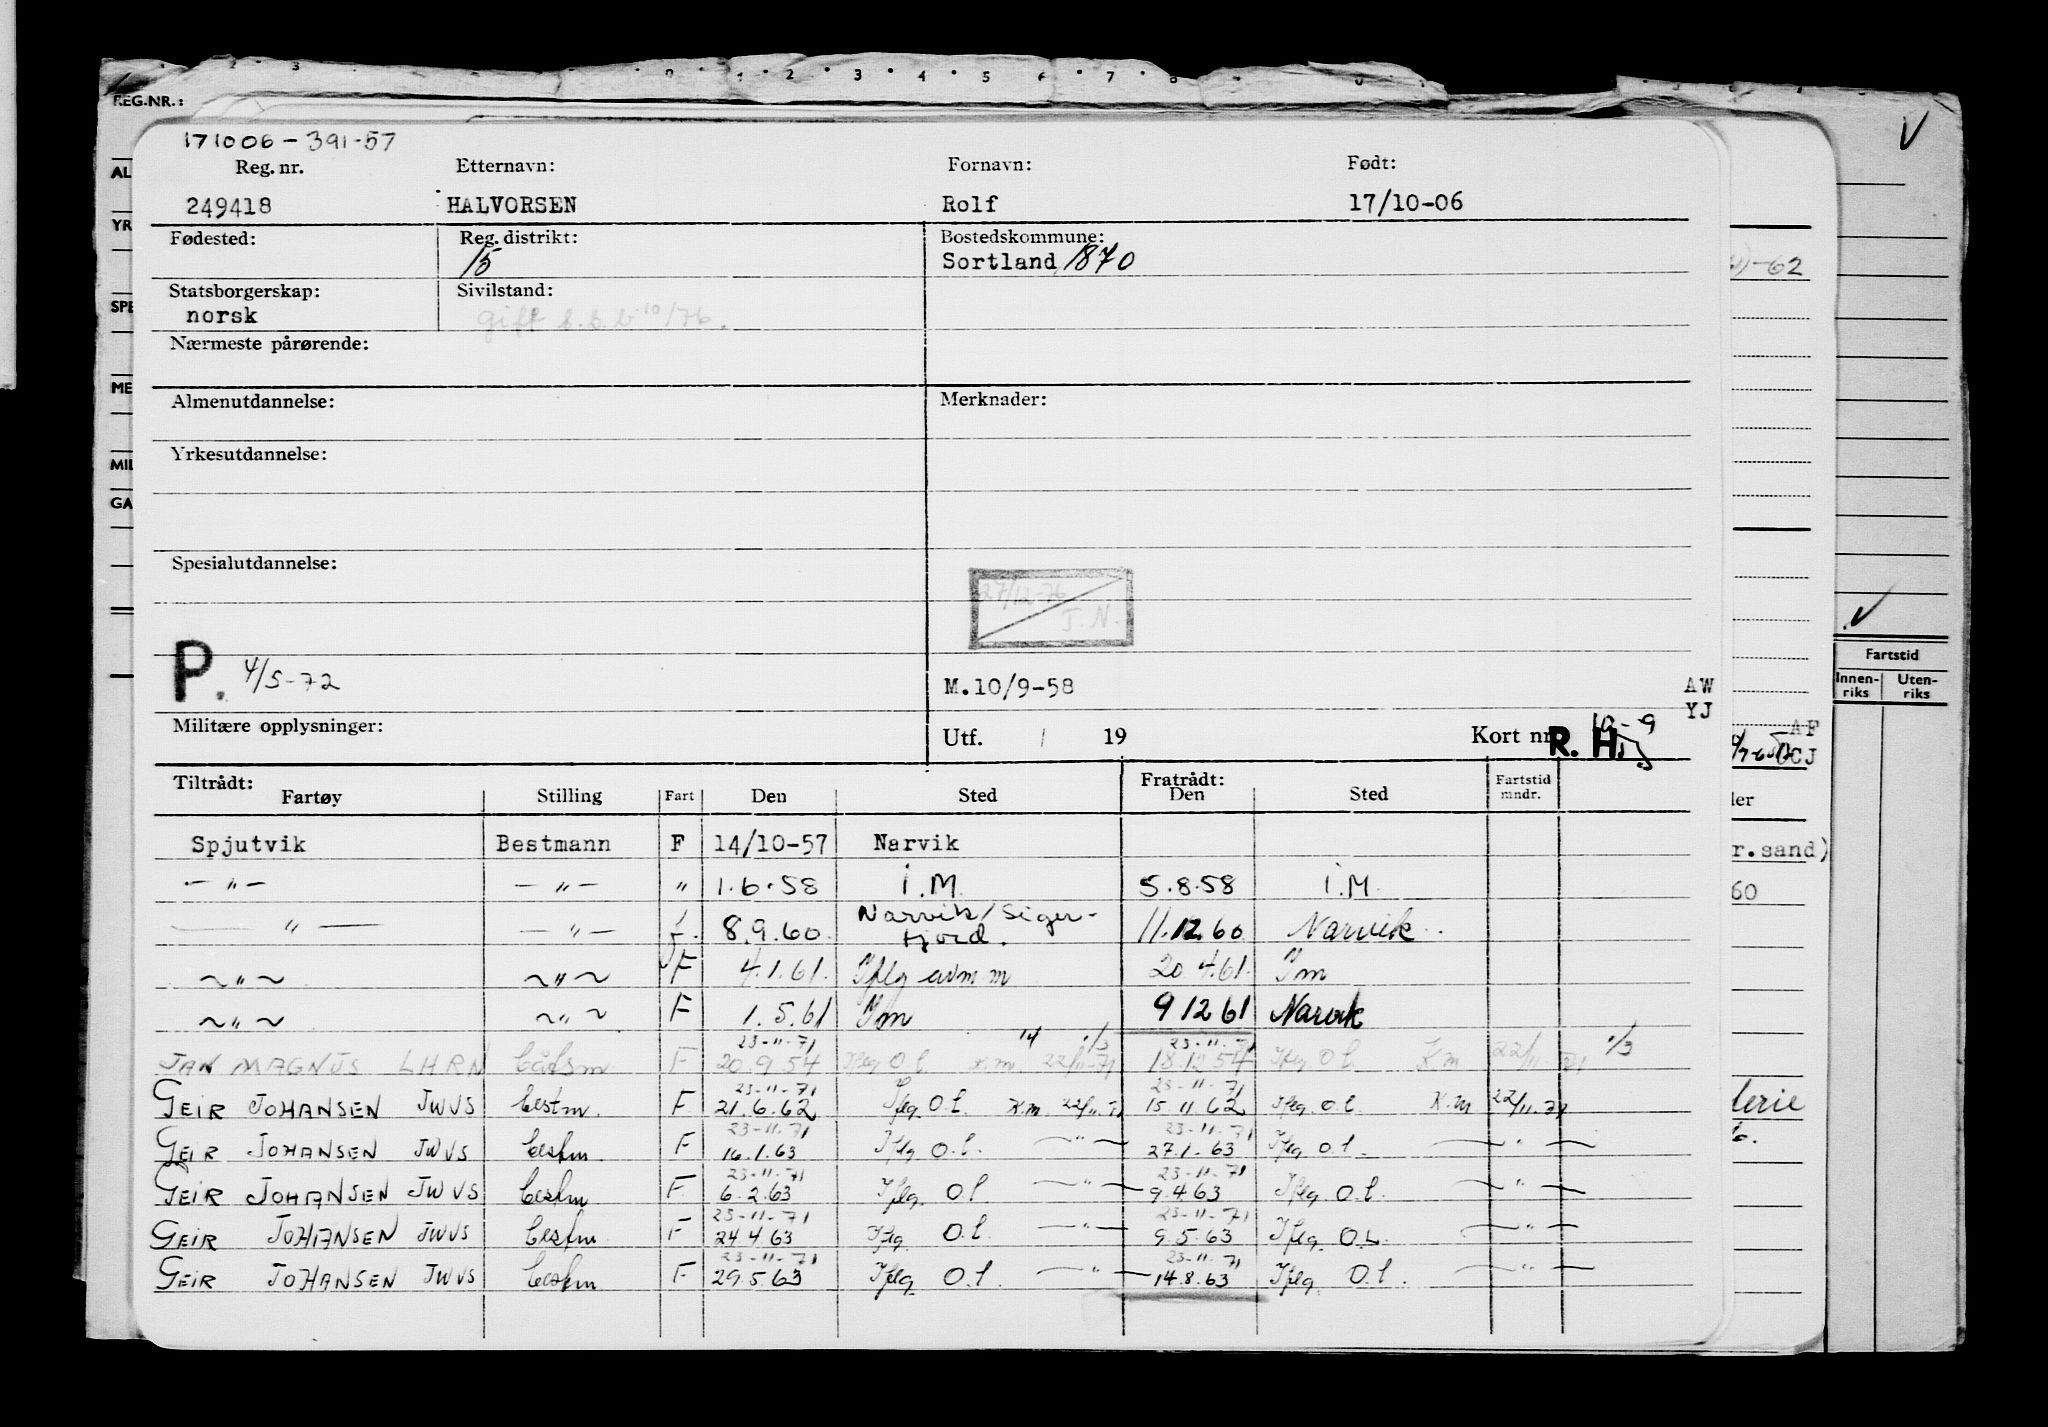 171006-391-57
Reg. nr. Etternavn: Fornavn: Født:
249418 HALVORSEN Rolf 17/10-06
Fødested: Reg. distrikt: Bostedskommune:
15 Sortland, 1870
Statsborgerskap: Sivilstand:
norsk gift 10/76.
Nærmeste pårørende:
Almenutdannelse: Merknader:
Yrkesutdannelse:
Spesialutdannelse:
27/12-76
T.N.
P. 4/5-72 M.10/9-58 AW
YJ
Militære opplysninger: Utf. / 19 Kort nr. R. H.
Tiltrådt: Fratrådt:
Fartøy Stilling Fart Den Sted Den Sted Fartstid mndr.
Spjutvik Bestmann F 14/10-57 Narvik
— " — — " — " 1.6.58 i.M. 5.8.58 i.M.
— " — — " — f. 8.9.60. Narvik/Siger-
fjord. 11.12.60 Narvik.
~ " ~ ~ " ~ F 4.1.61. Iflg avm m 20.4.61. Im
~ " ~ ~ " ~ F 1.5.61 Im 9 12 61 Narvik
23-11-71 23-11-71
JAN MAGNUS LHRN båtsm F 20.9.54 Iflg O.l. K.m. 22/11-71 18.12.54 Iflg O l. K m 22/11-71
23-11-71 23-11-71
GEIR JOHANSEN JWVS bestm. F 21.6.62 Iflg. O.l. K.m. 22/11-71 15.11.62 Iflg. O.l. K.m 22/11-71
23-11-71 23-11-71
GEIR JOHANSEN JWVS bestm. F 16.1.63 Iflg O.l. — " — 27.1.63 Iflg O.l. — " —
23-11-71 23-11-71
GEIR JOHANSEN JWVS bestm F 6.2.63 Iflg. O.l — " — 9.4.63 Iflg. O.l. — " —
23-11-71 23-11-71
GEIR JOHANSEN JWVS bestm. F 24.4.63 Iflg. O.l. — " — 9.5.63 Iflg. O.L. — " —
23-11-71 23-11-71
GEIR JOHANSEN JWVS bestm F 29.5.63 Iflg. O.l. — " — 14.8.63 Iflg. O.l. — " —
REG.NR.:
AL
YR
SPE
ME
MIL
GA
-62
AF
CJ
ler
r.sand)
60
lerie
Fartstid
Innen-
riks Uten-
riks